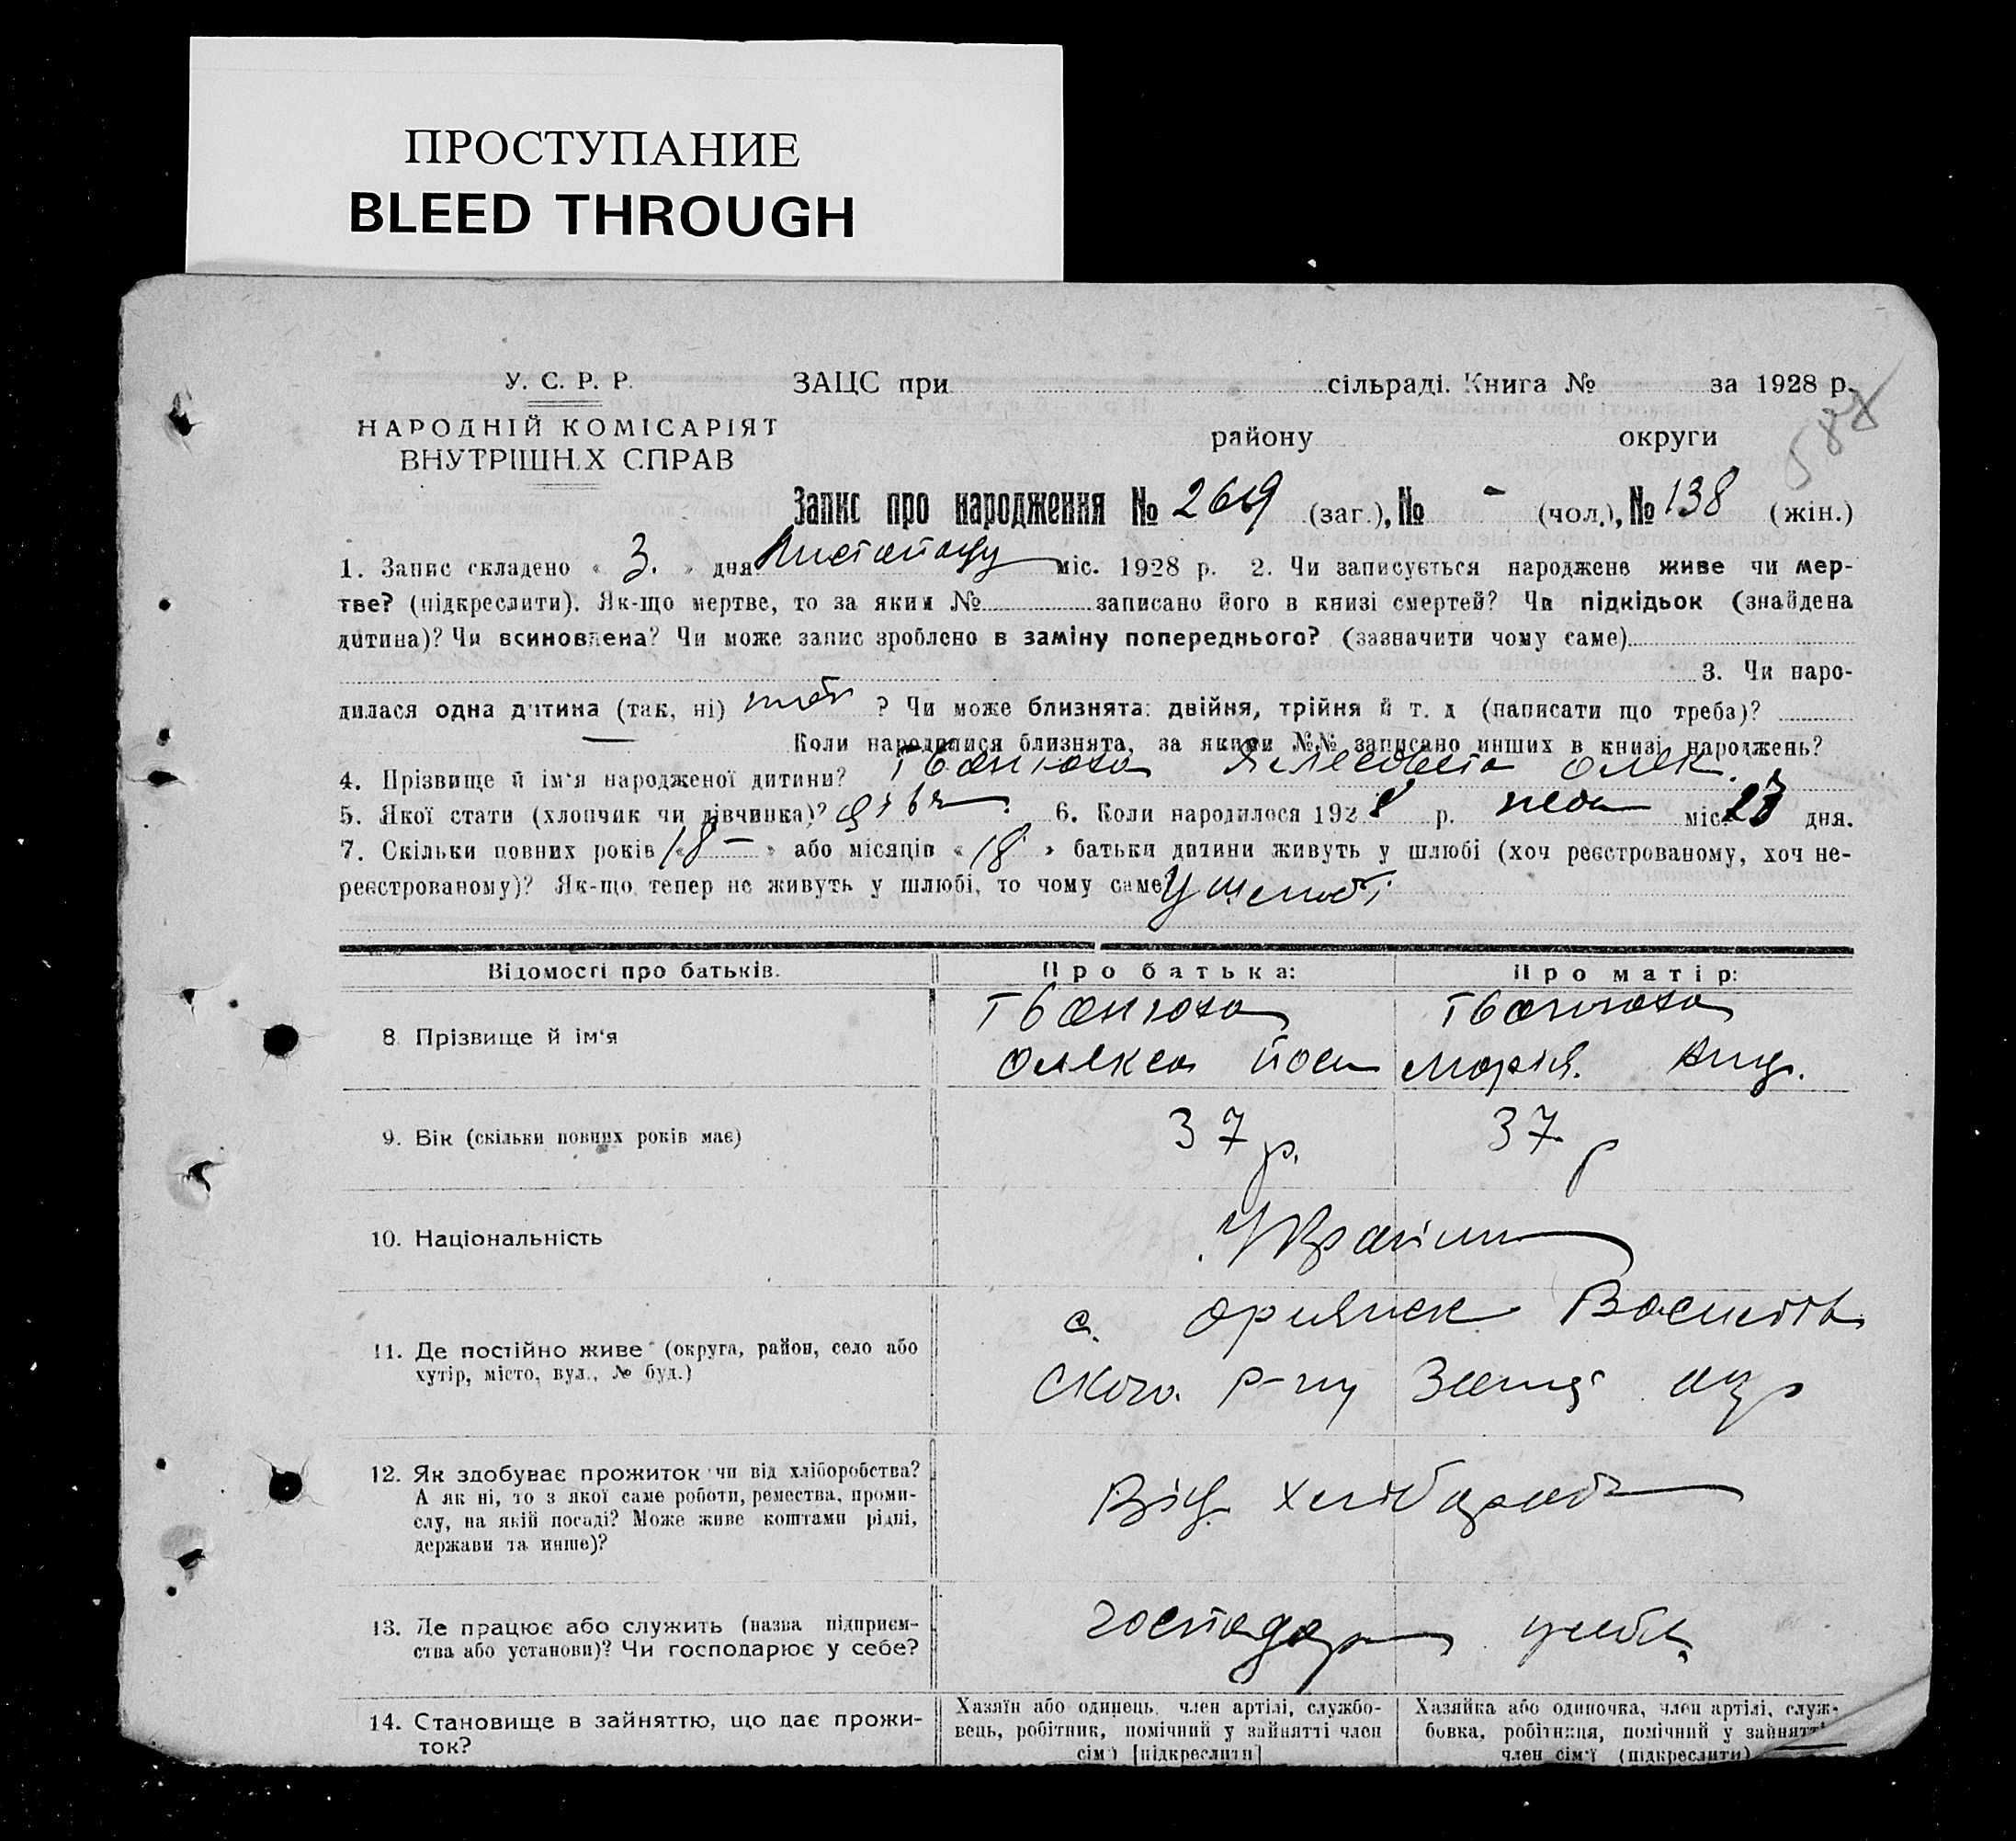 ПРОСТУПАНИЕ
BLEED THROUGH
У. С. Р. Р.
НАРОДНІЙ КОМІСАРІЯТ
ВНУТРІШН.Х СПРАВ
ЗАЦС при сільраді. Книга № за 1928 р.
району округи
588
Запис про народження № 269 (заг.), № - (чол.), № 138 (жін.)
1. Запис складено « 3. » дня Листопаду міс. 1928 р. 2. Чи записується народжене живе чи мер-
тве? (підкреслити). Як-що мертве, то за яким № записано його в книзі смертей? Чи підкідьок (знайдена
дитина)? Чи всиновлена? Чи може запис зроблено в заміну попереднього? (зазначити чому саме)
3. Чи наро-
дилася одна дитина (так, ні) так ? Чи може близнята: двійня, трійня й т. д (написати що треба)?
Коли народилися близнята, за якими №№ записано инших в книзі народжень?
4. Прізвище й ім‘я народженої дитини? Іванюха Єлесовета Олек.
5. Якої стати (хлопчик чи дівчинка)? дівч 6. Коли народилося 1928 р. міс. 27 дня.
7. Скільки повних років « 18 - » або місяців « 18 » батьки дитини живуть у шлюбі (хоч реєстрованому, хоч не-
реєстрованому)? Як-що тепер не живуть у шлюбі, то чому саме? У шлюбі
Відомості про батьків.
Про батька:
Про матір:
8. Прізвище й ім‘я
Іванюха
Олекса Йос
Іванюха
Марія.
9. Вік (скільки повних років має)
37 р.
37 р
10. Національність
Україн
11. Де постійно живе (округа, район, село або
хутір, місто, вул., № буд.)
с. Орлянск Василів
ского р-ну Запор окр
12. Як здобуває прожиток чи від хліборобства?
А як ні, то з якої саме роботи, ремества, проми-
слу, на якій посаді? Може живе коштами рідні,
держави та инше)?
Від хлібороб
13. Де працює або служить (назва підприєм-
ства або установи)? Чи господарює у себе?
господар у себе
14. Становище в зайняттю, що дає прожи-
ток?
Хазяїн або одинець, член артілі, службо-
вець, робітник, помічний у зайнятті член
сім‘ї [підкреслити]
Хазяйка або одиночка, член артілі, служ-
бовка, робітниця, помічний у зайнятті
член сім‘ї (підкреслити)